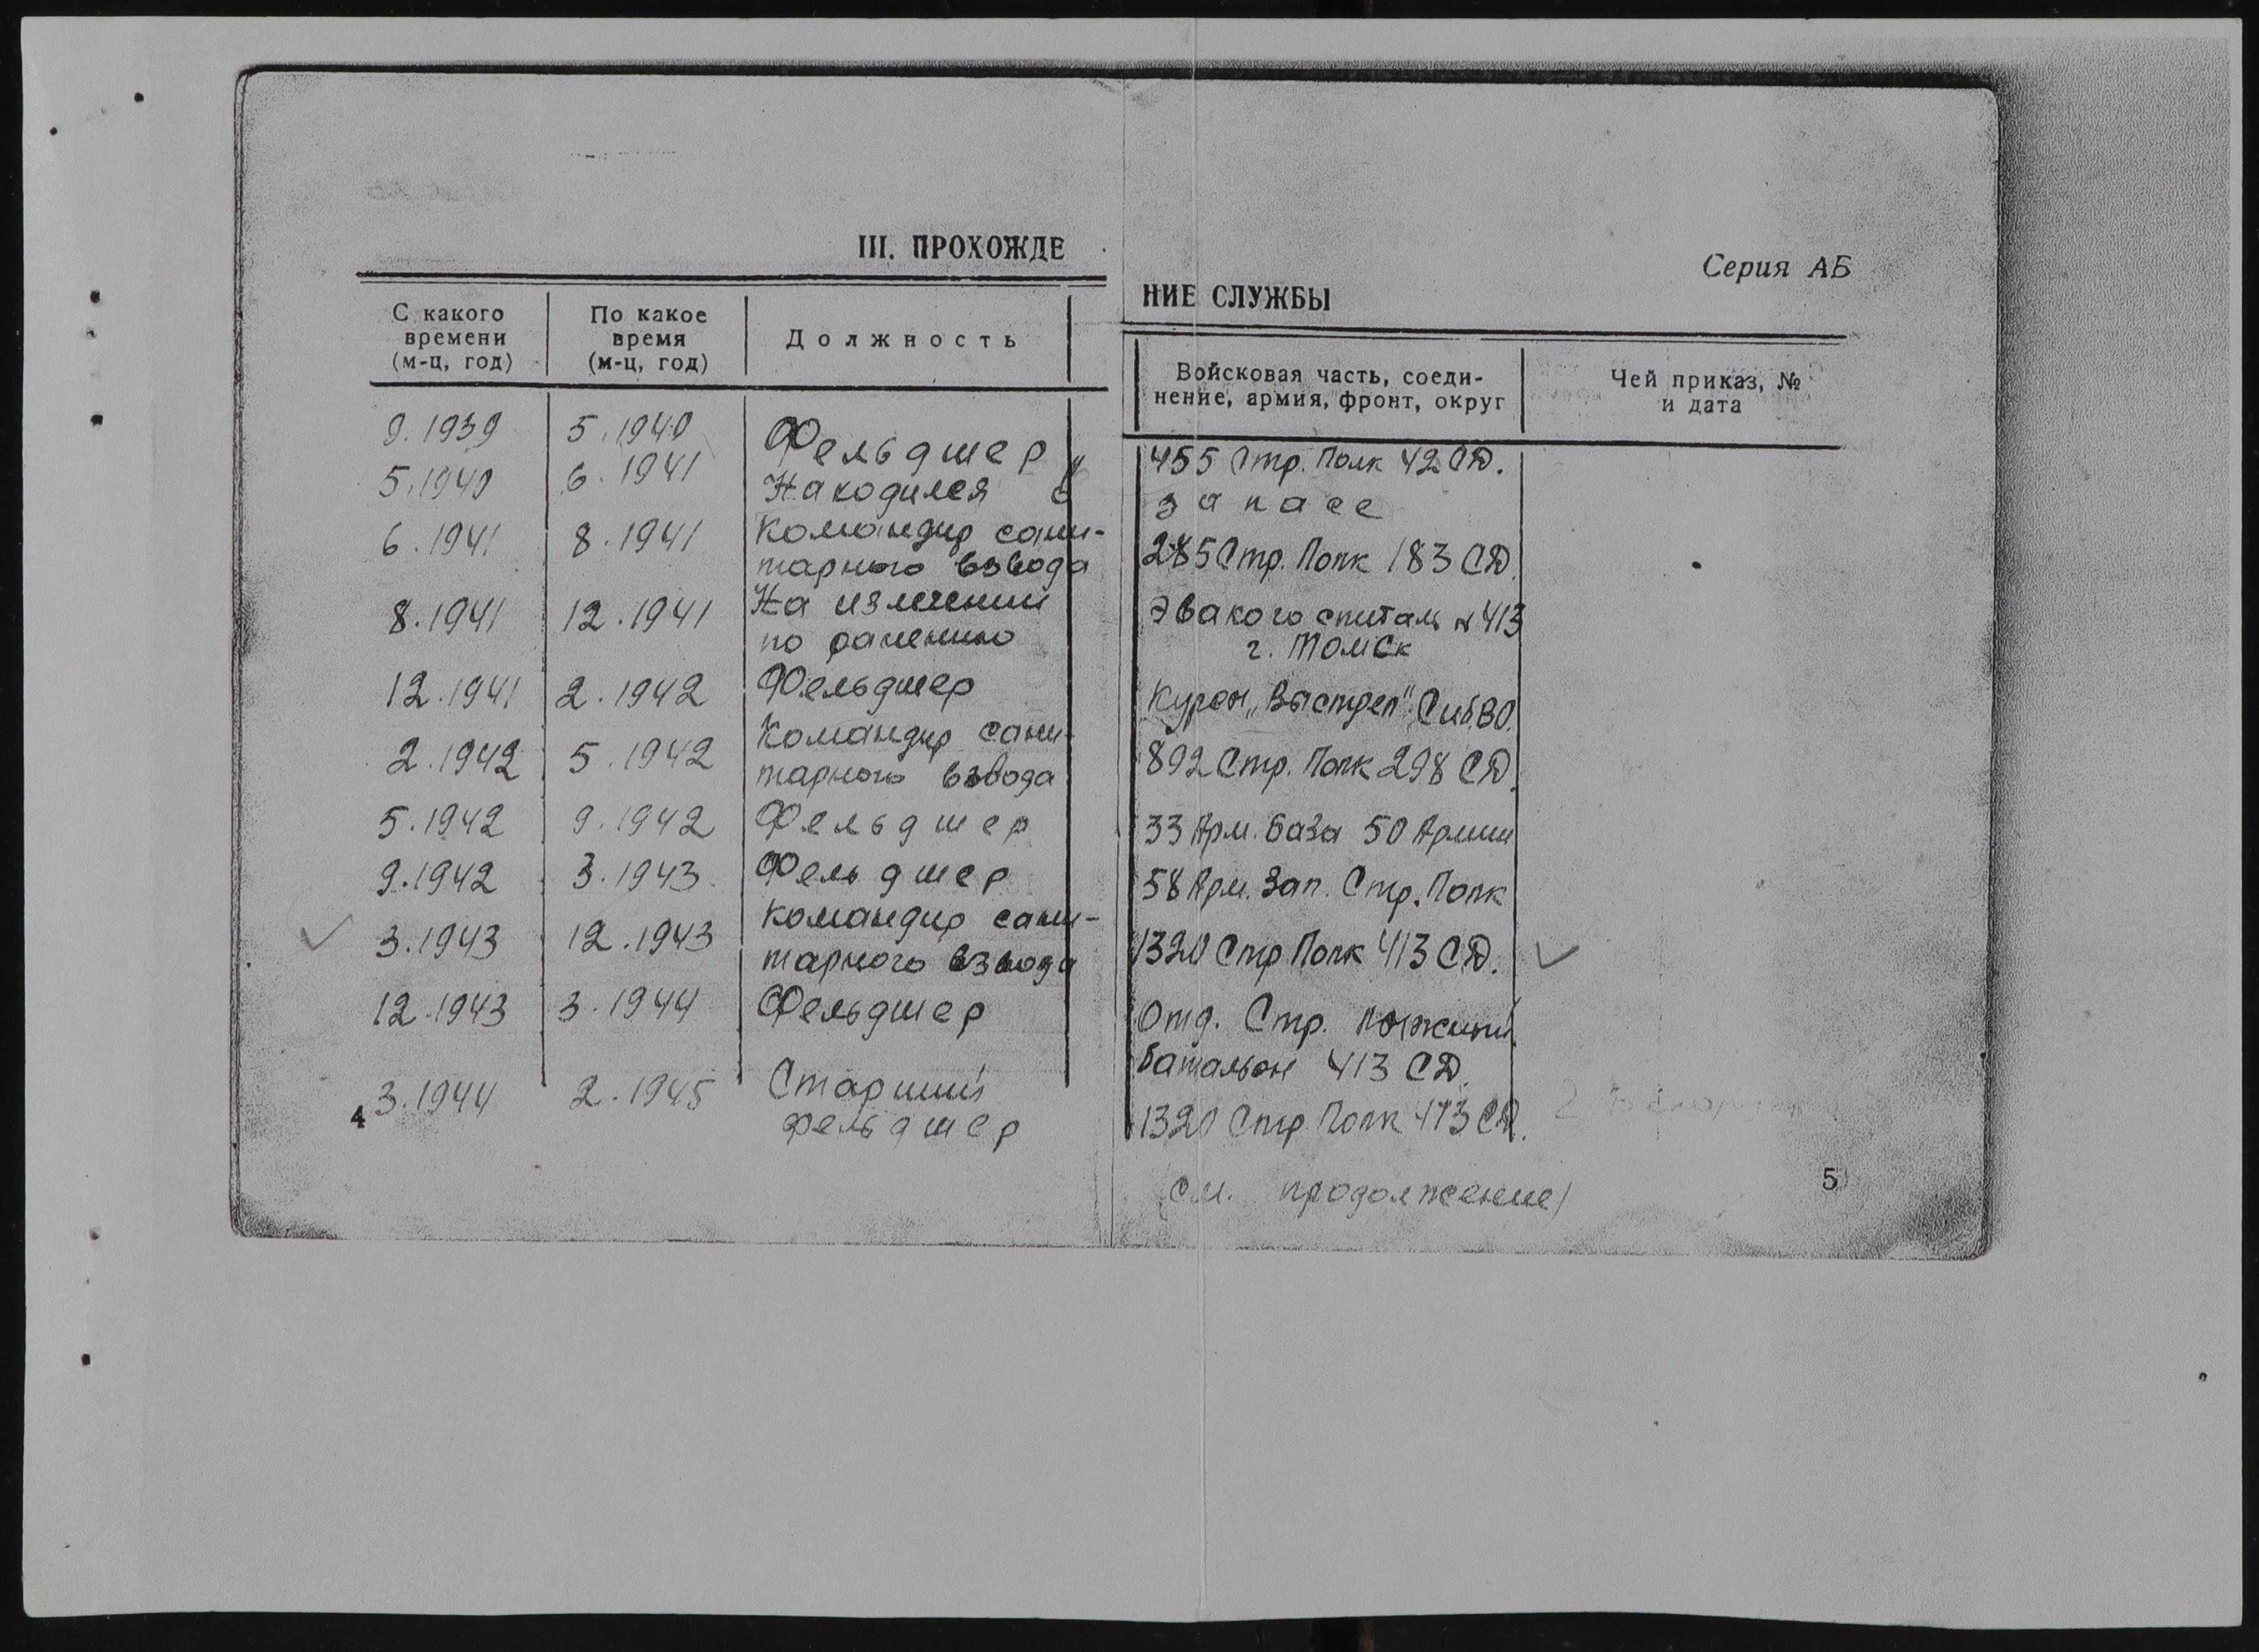 III. ПРОХОЖДЕ
С какого
времени
(м-ц, год)
По какое
время
(м-ц, год)
Должность
9.1939 5.1940 Фельдшер
5.1940 6.1941 Находился в
6.1941 8.1941 Командир сани-
тарного взвода
8.1941 12.1941 На излечении
по ранению
12.1941 2.1942 Фельдшер
2.1942 5.1942 Командир сани-
тарного взвода
5.1942 9.1942 Фельдшер
9.1942 3.1943 Фельдшер
3.1943 12.1943 Командир сани-
тарного взвода
12.1943 3.1944 Фельдшер
3.1944 2.1945 Старший
фельдшер
4
Серия АБ
НИЕ СЛУЖБЫ
Войсковая часть, соеди-
нение, армия, фронт, округ
Чей приказ, №
и дата
455 Стр. Полк 42 СД.
запасе
285 Стр. Полк 183 СД.
Эвакогоспиталь № 413
г. Томск
Курсы „Выстрел" СибВО.
892 Стр. Полк 298 СД.
33 Арм. База 50 Армии
58 Арм. Зап. Стр. Полк
1320 Стр Полк 413 СД.
Отд. Стр. лыжный
батальон 413 СД.
1320 Стр Полк 413 СД.
(см. продолжение)
5